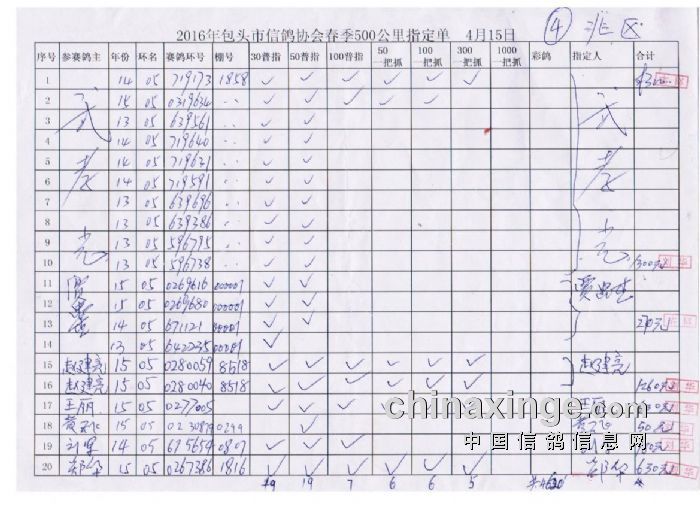 2016年包头市信鸽协会春季500公里指定单 4月15日
④ 北区
序号 参赛鸽主 年份 环名 赛鸽环号 棚号 30普指 50普指 100普指 50一把抓 100一把抓 300一把抓 1000一把抓 彩鸽 指定人 合计
1 14 05 719173 1858 ✓ ✓ ✓ ✓ ✓ ✓
2 14 05 0319634 ✓ ✓ ✓ ✓ ✓
3 武 13 05 639561 ✓ ✓ 武
4 14 05 719640 ✓ ✓
5 14 05 719621 ✓ ✓
6 孝 14 05 719591 ✓ ✓ 孝
7 13 05 639696 ✓ ✓
8 13 05 639386 ✓ ✓
9 光 13 05 596795 ✓ ✓ 光
10 13 05 596738 ✓ ✓
11 贾 15 05 0269616 00001 ✓ ✓ 贾
12 15 05 0269680 00001 ✓ ✓
13 14 05 671121 00001 ✓ ✓ 270元
14 13 05 642235 00001 ✓
15 赵建亮 15 05 0280059 8518 ✓ ✓ ✓ ✓ ✓ ✓ 赵建亮
16 赵建亮 15 05 0280040 8518 ✓ ✓ ✓ ✓ ✓ ✓ 1260元
17 王丽 15 05 0277005 ✓ ✓ ✓ 王丽
18 15 05 0299 ✓ 50元
19 刘军 14 05 675654 0807 ✓ ✓ ✓
20 郭华 15 05 0267386 1816 ✓ ✓ ✓ ✓ ✓ ✓ 郭华 630元
19 19 7 6 6 5
chinaxinge.com
中国信鸽信息网